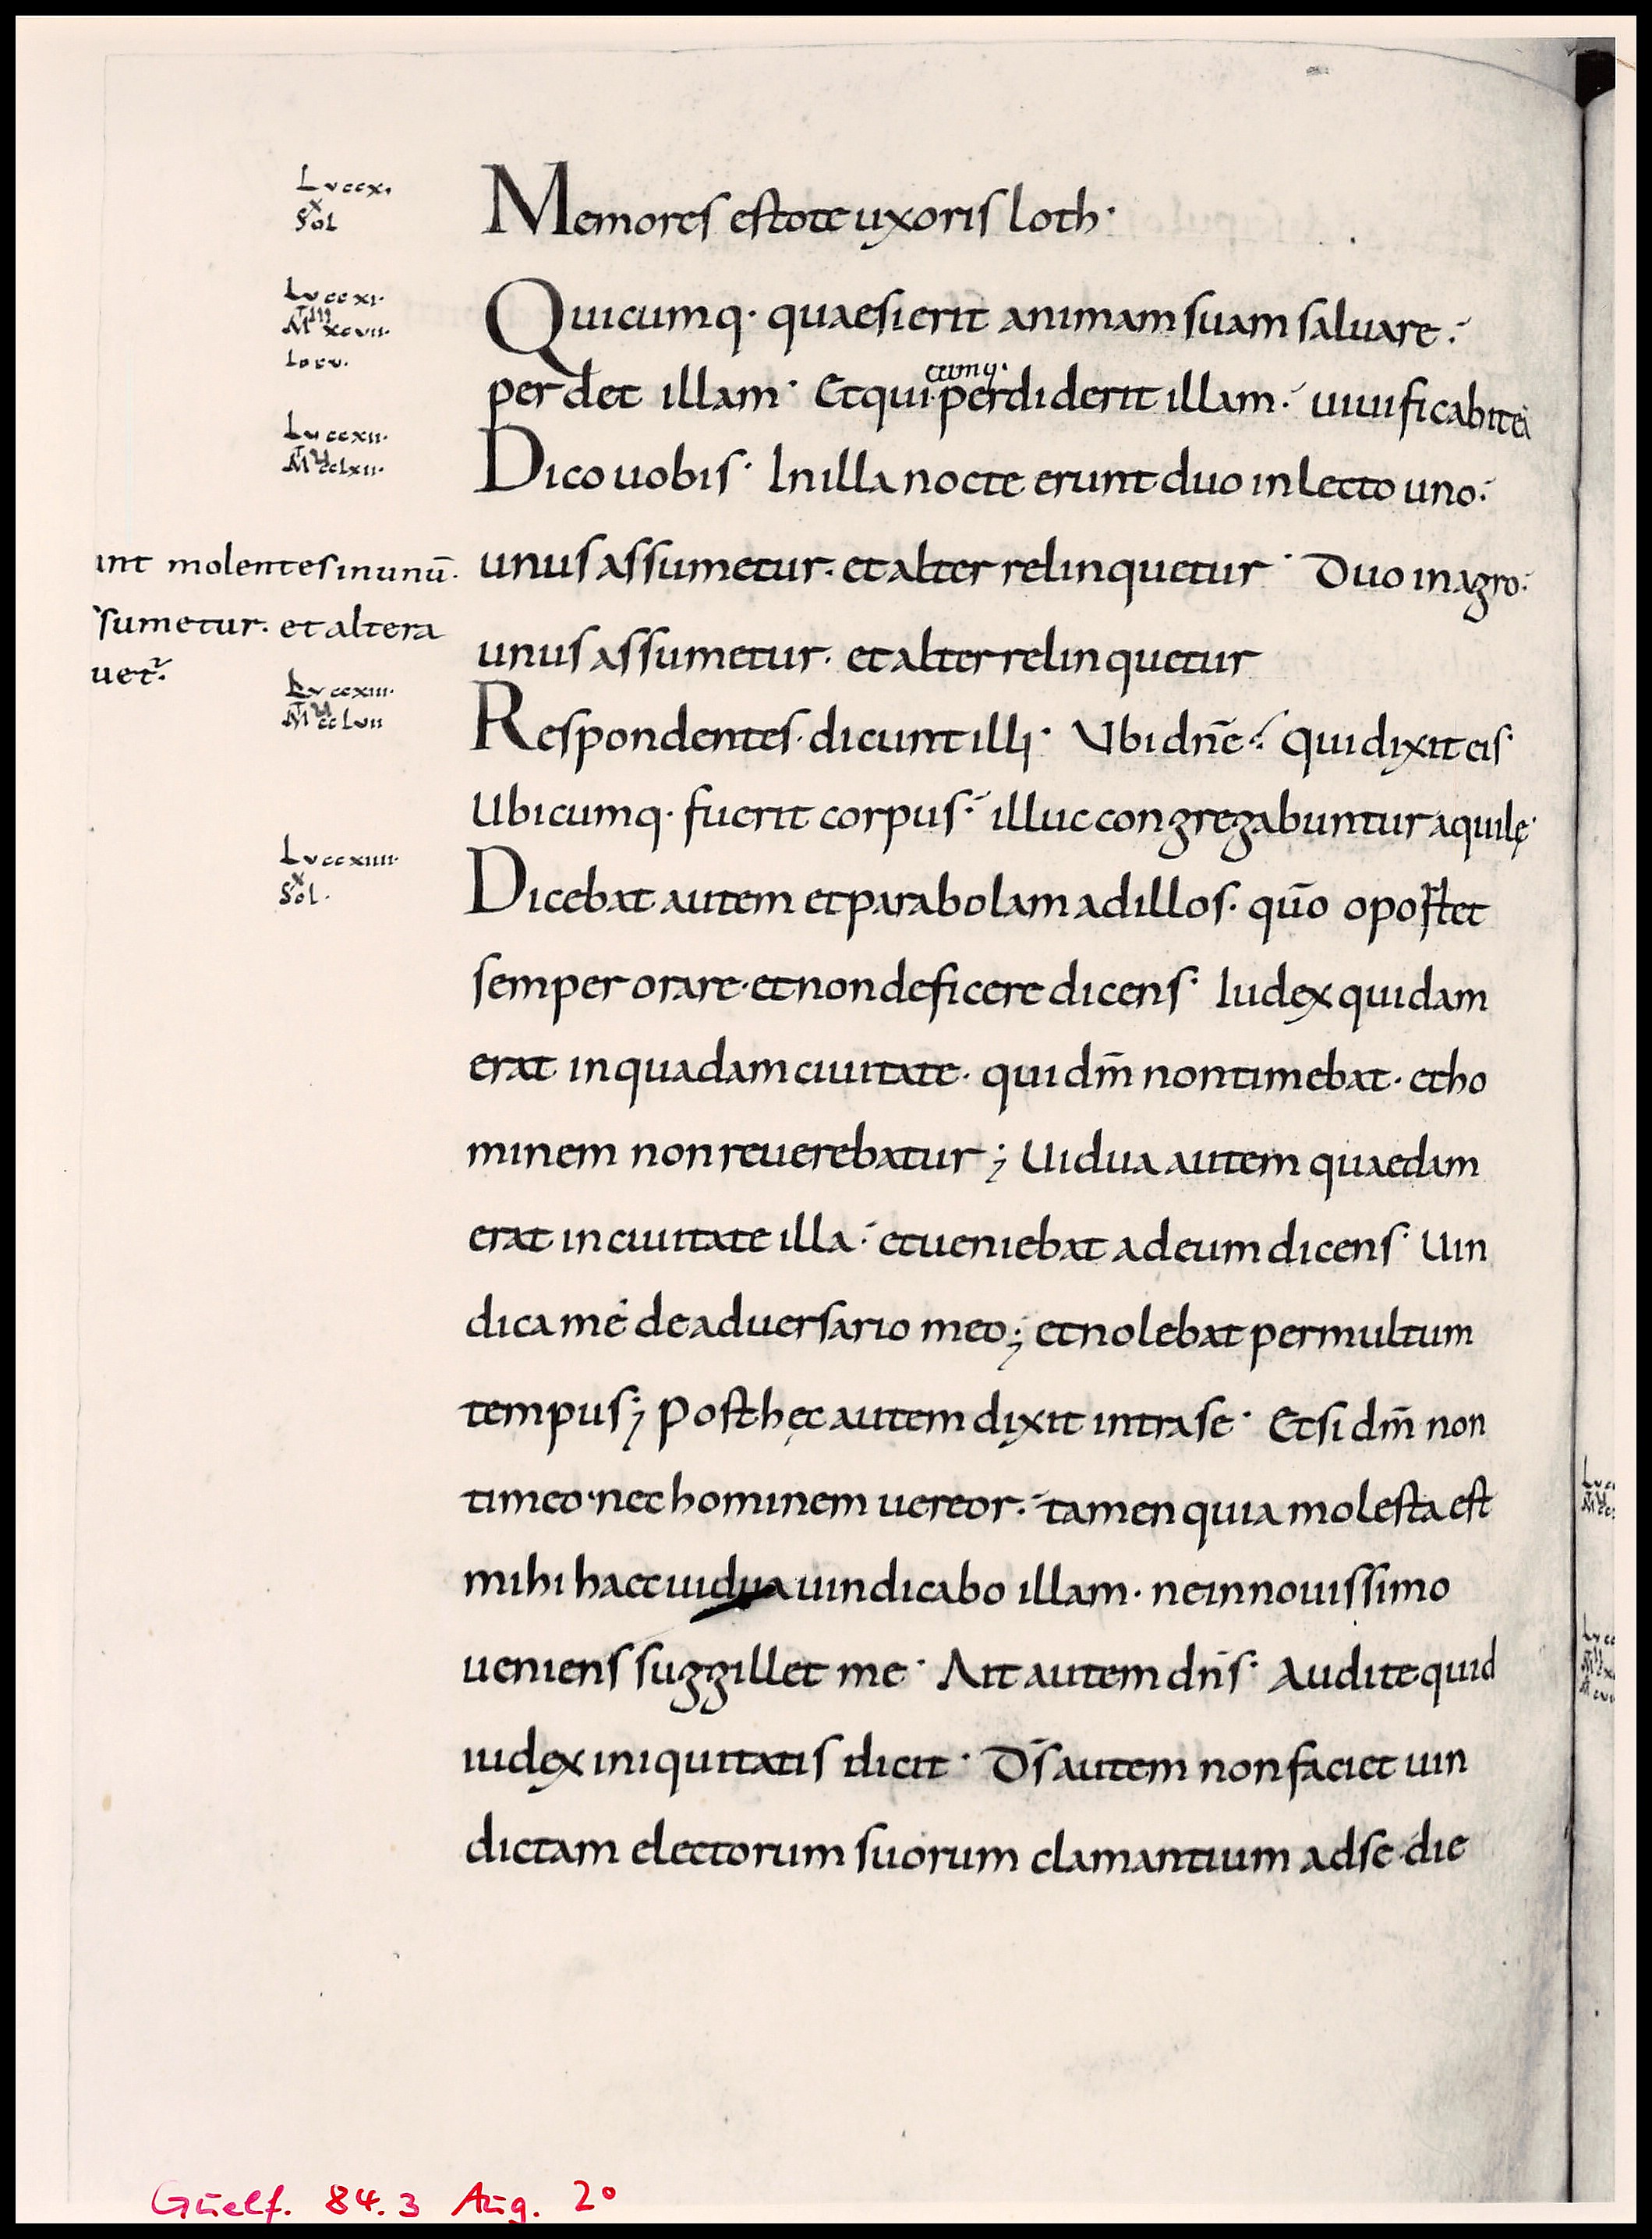 Lu ccx.
x
Sol
Memores estote uxoris loth·
Lu ccxi.
III
M xcvii.
Io cv.
Quicumq· quaesierit animam suam saluare·
perdet illam· Et qui cumq· perdiderit illam· uiuificabit eã
Lu ccxii.
V
M cclxii.
Dico uobis· In illa nocte erunt duo in lecto uno·
int molentes in unū·
unus assumetur· et alter relinquetur· Duo in agro·
sumetur· et altera
unus assumetur· et alter relinquetur
uet᷑·
Lu ccxiii.
V
M cclvii
Respondentes· dicunt illi· Ubi dñe· Qui dixit eis·
Ubicumq· fuerit corpus· illuc congregabuntur aquilę·
Lu ccxiiii.
x
Sol.
Dicebat autem et parabolam ad illos· quō oportet
semper orare· et non deficere dicens· Iudex quidam
erat in quadam ciuitate· qui dm̄ non timebat· et ho
minem non reuerebatur; Uidua autem quaedam
erat in ciuitate illa· et ueniebat ad eum dicens· Uin
dica me de aduersario meo; et nolebat per multum
tempus; Post hęc autem dixit intra se· Etsi dm̄ non
timeo· nec hominem uereor· tamen quia molesta est
mihi haec uidua uindicabo illam· ne in nouissimo
ueniens suggillet me· Ait autem dn̄s· Audite quid
iudex iniquitatis dicit· D̄s autem non faciet uin
dictam electorum suorum clamantium ad se die
Guelf. 84.3 Aug. 2°